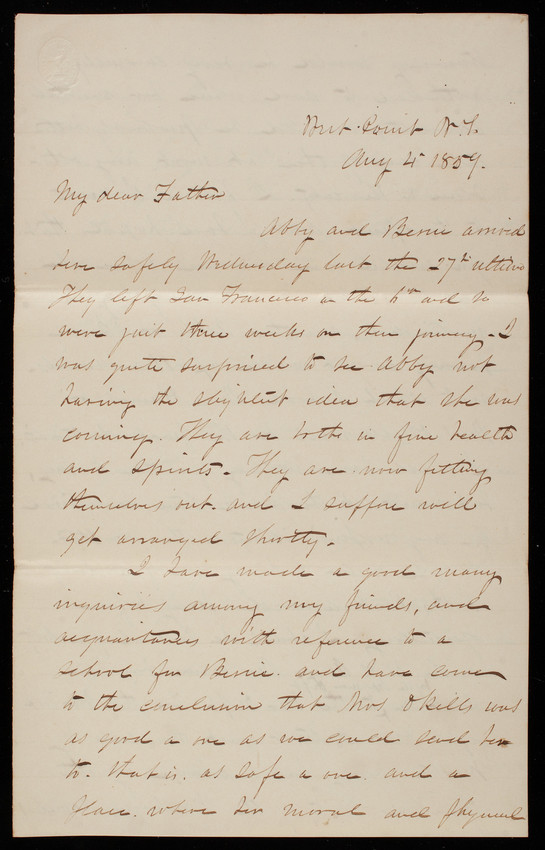 West Point N.Y.
Aug 4 1859.
My dear Father
Abby and Bernie arrived
here safely Wednesday last the 27th ultimo
They left San Francisco on the 5th and so
were just three weeks on their journey. I
was quite surprised to see Abby not
having the slightest idea that she was
coming. They are both in fine health
and spirits. They are now fitting
themselves out. and I suppose will
get arranged shortly.
I have made a good many
inquiries among my friends, and
acquaintances with reference to a
school for Bernie. and have come
to the conclusion that Mrs Okills was
as good a one as we could send her
to. that is. as safe a one. and a
place. where her moral and physical